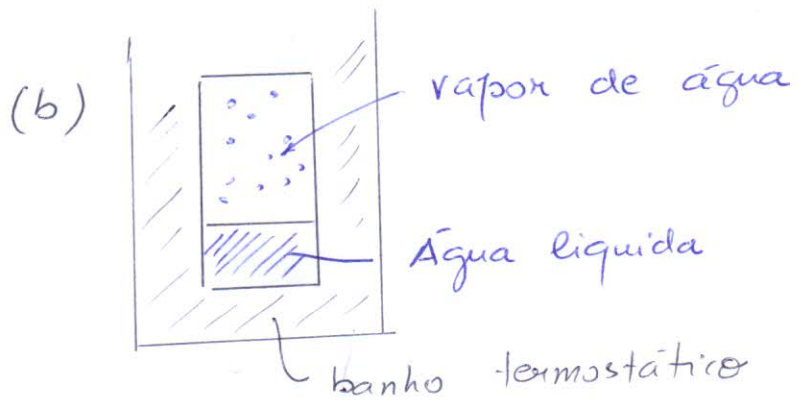 (b)
vapor de água
Água liquida
banho termostático